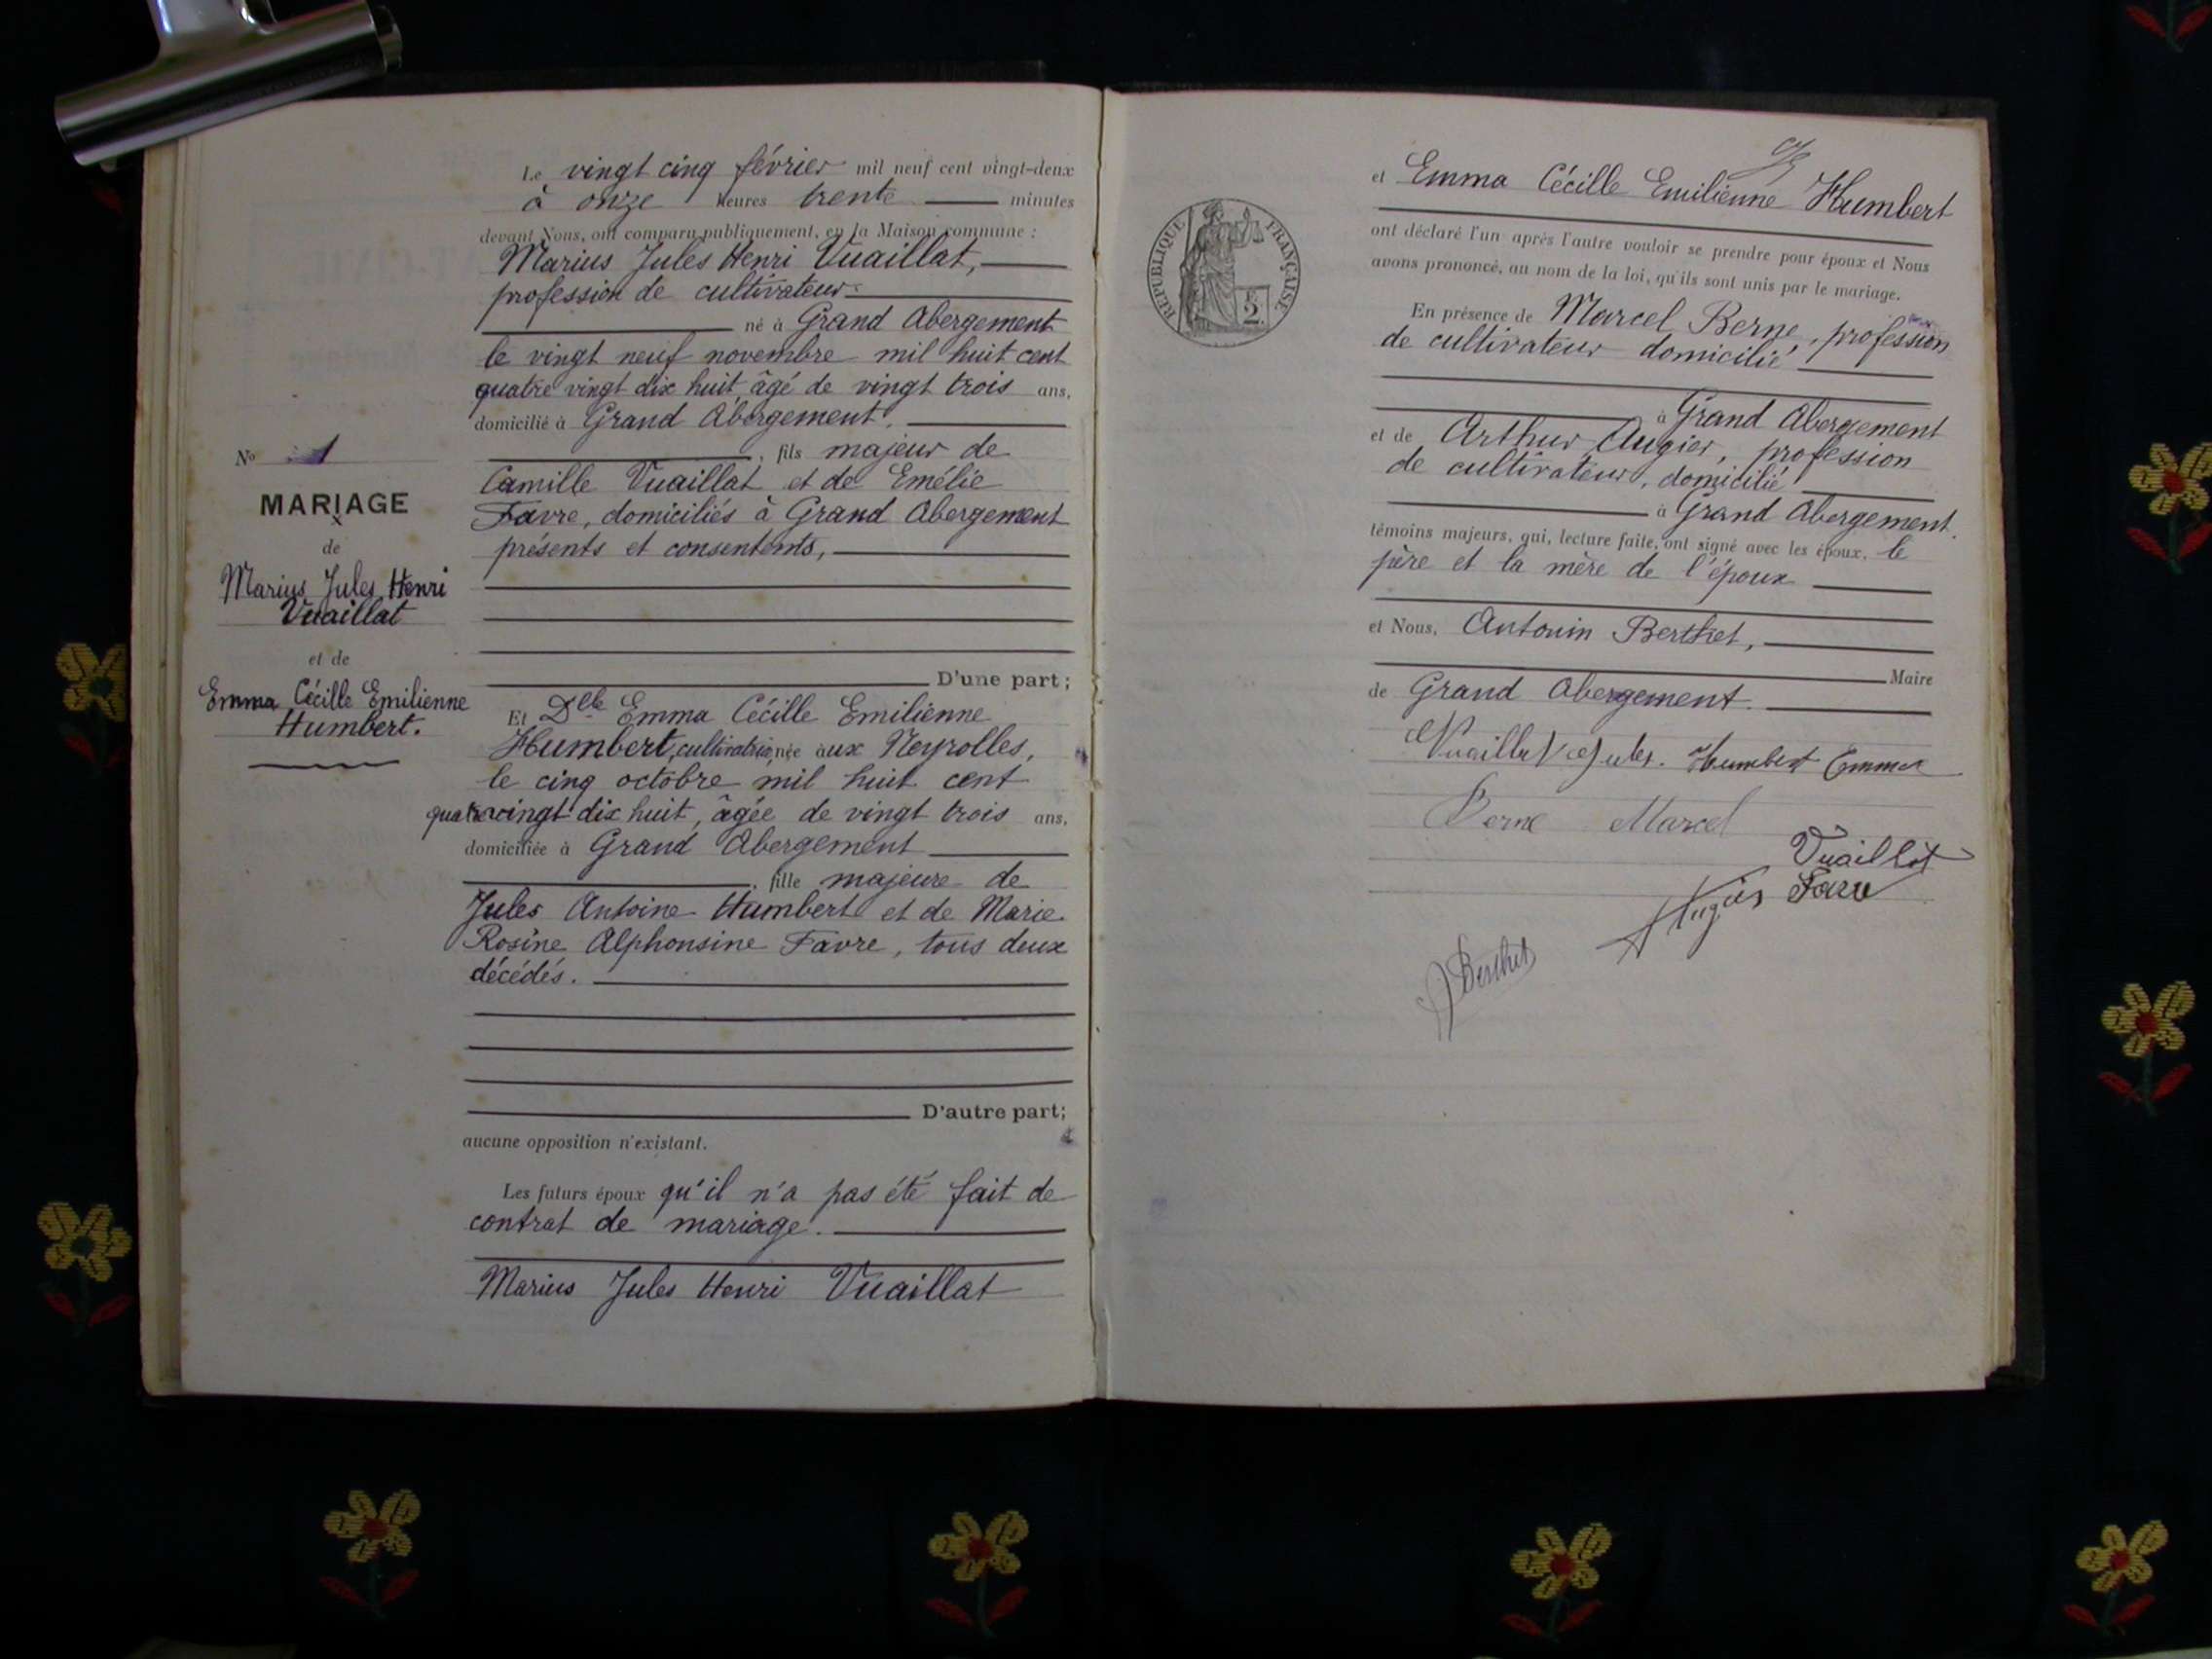 N° 1
MARIAGE
de
Marius Jules Henri
Vuaillat
et de
Emma Cécille Emilienne
Humbert.
Le vingt cinq février mil neuf cent vingt-deux
à onze heures trente minutes
devant Nous, ont comparu publiquement, en la Maison commune :
Marius Jules Henri Vuaillat,
profession de cultivateur
né à Grand Abergement
le vingt neuf novembre mil huit cent
quatre vingt dix huit, âgé de vingt trois ans,
domicilié à Grand Abergement,
, fils majeur de
Camille Vuaillat et de Emélie
Favre, domiciliés à Grand Abergement
présents et consentents,
D'une part ;
Et Dlle Emma Cécille Emilienne
Humbert, cultivatrice, née aux Neyrolles,
le cinq octobre mil huit cent
quatre vingt dix huit, âgée de vingt trois ans,
domiciliée à Grand Abergement
, fille majeure de
Jules Antoine Humbert et de Marie
Rosine Alphonsine Favre, tous deux
décédés.
D'autre part;
aucune opposition n'existant.
Les futurs époux qu'il n'a pas été fait de
contrat de mariage.
Marius Jules Henri Vuaillat
REPUBLIQUE FRANÇAISE
2
et Emma Cécille Emilienne Humbert
ont déclaré l'un après l'autre vouloir se prendre pour époux et Nous
avons prononcé, au nom de la loi, qu'ils sont unis par le mariage.
En présence de Marcel Berne, profession
de cultivateur domicilié
à Grand Abergement
et de Arthur Augier, profession
de cultivateur, domicilié
à Grand Abergement.
témoins majeurs, qui, lecture faite, ont signé avec les époux, le
père et la mère de l'époux
et Nous, Antonin Berthet,
Maire
de Grand Abergement.
Vuaillat Jules. Humbert Emma
Berne Marcel
Vuaillat
Augier Favre
Berthet